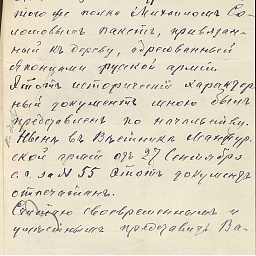 того же полка Михаиломъ Со-
ломовымъ пакетъ, привязан-
ный къ дереву, адресованный
Японцами русской арміи.
Этотъ историческій характер-
ный документъ мною былъ
представленъ по начальству.
Нынѣ въ Вѣстникѣ Манчжур-
ской арміи отъ 27 Сентября
с.г. за № 55 этотъ документъ
отпечатанъ.
Считаю своевременнымъ и
умѣстнымъ представить Ва-